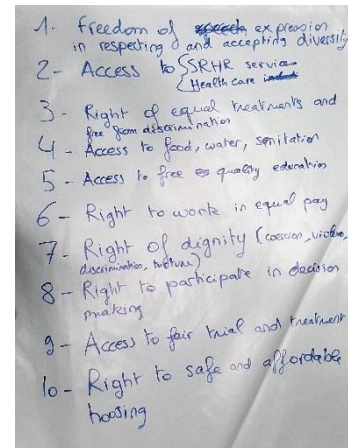 1. freedom of expression
in respecting and accepting diversity
2- Access to { SRHR service
Health care
3- Right of equal treatments and
free from discrimination
4- Access to food, water, sanitation
5- Access to free quality education
6- Right to work in equal pay
7- Right of dignity (coercion, violence,
discrimination, torture)
8- Right to participate in decision
making
9- Access to fair trial and treatment
10- Right to safe and affordable
housing